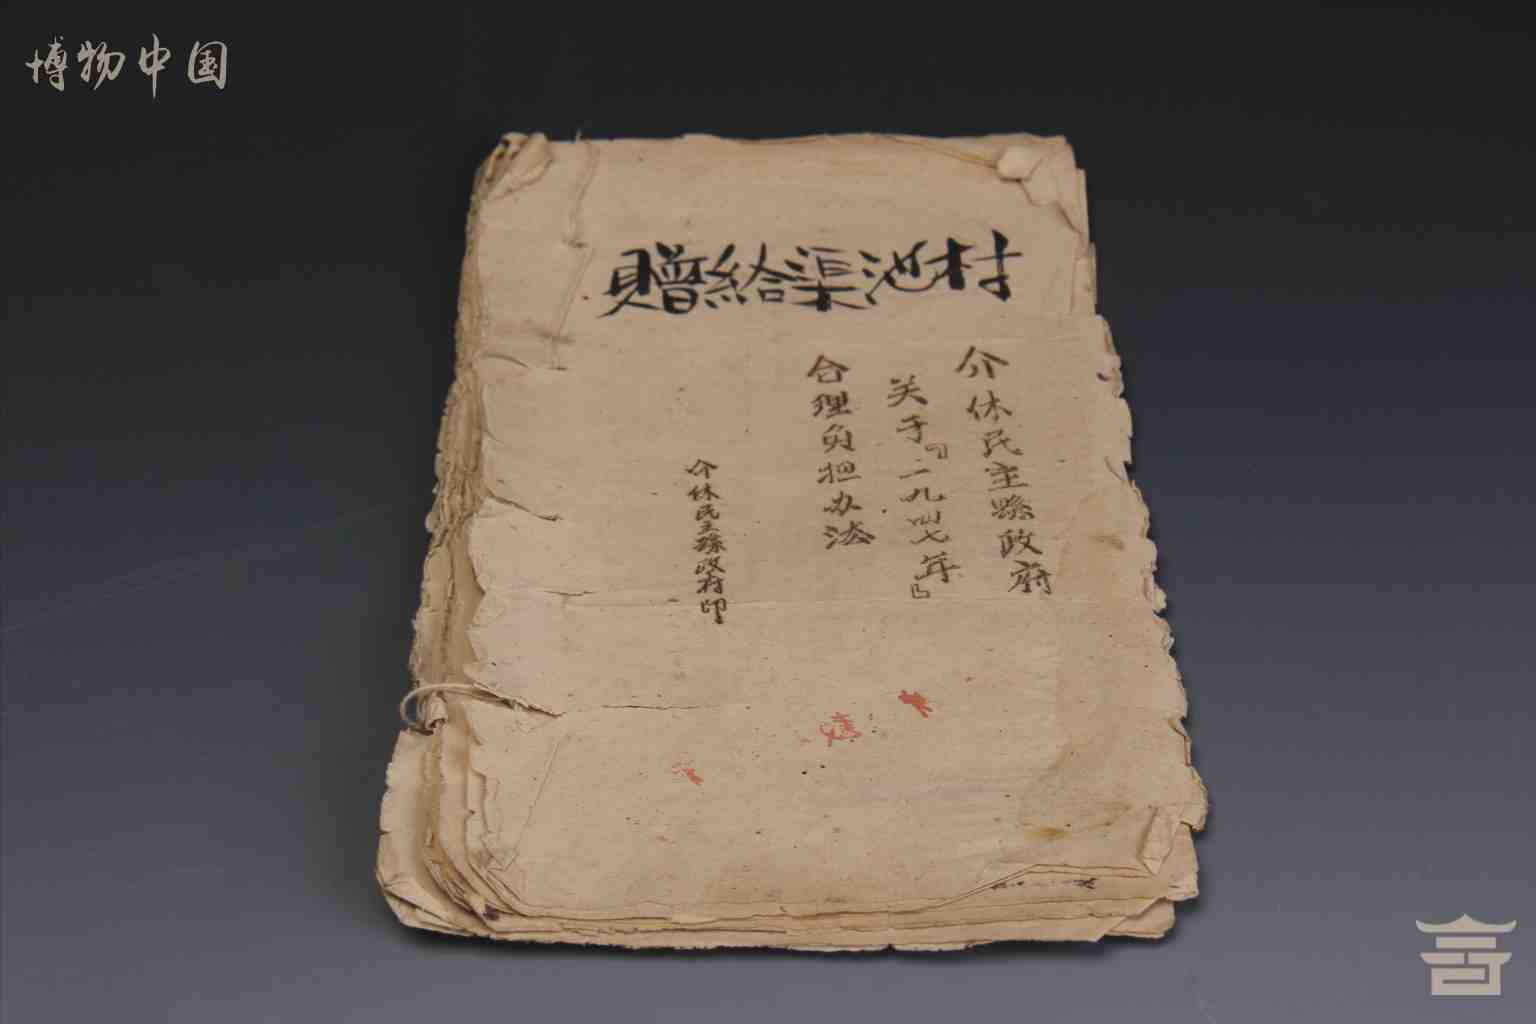 博物中国
贈給渠池村
介休民主縣政府
关于『一九四七年』
合理负担办法
介休民主縣政府印